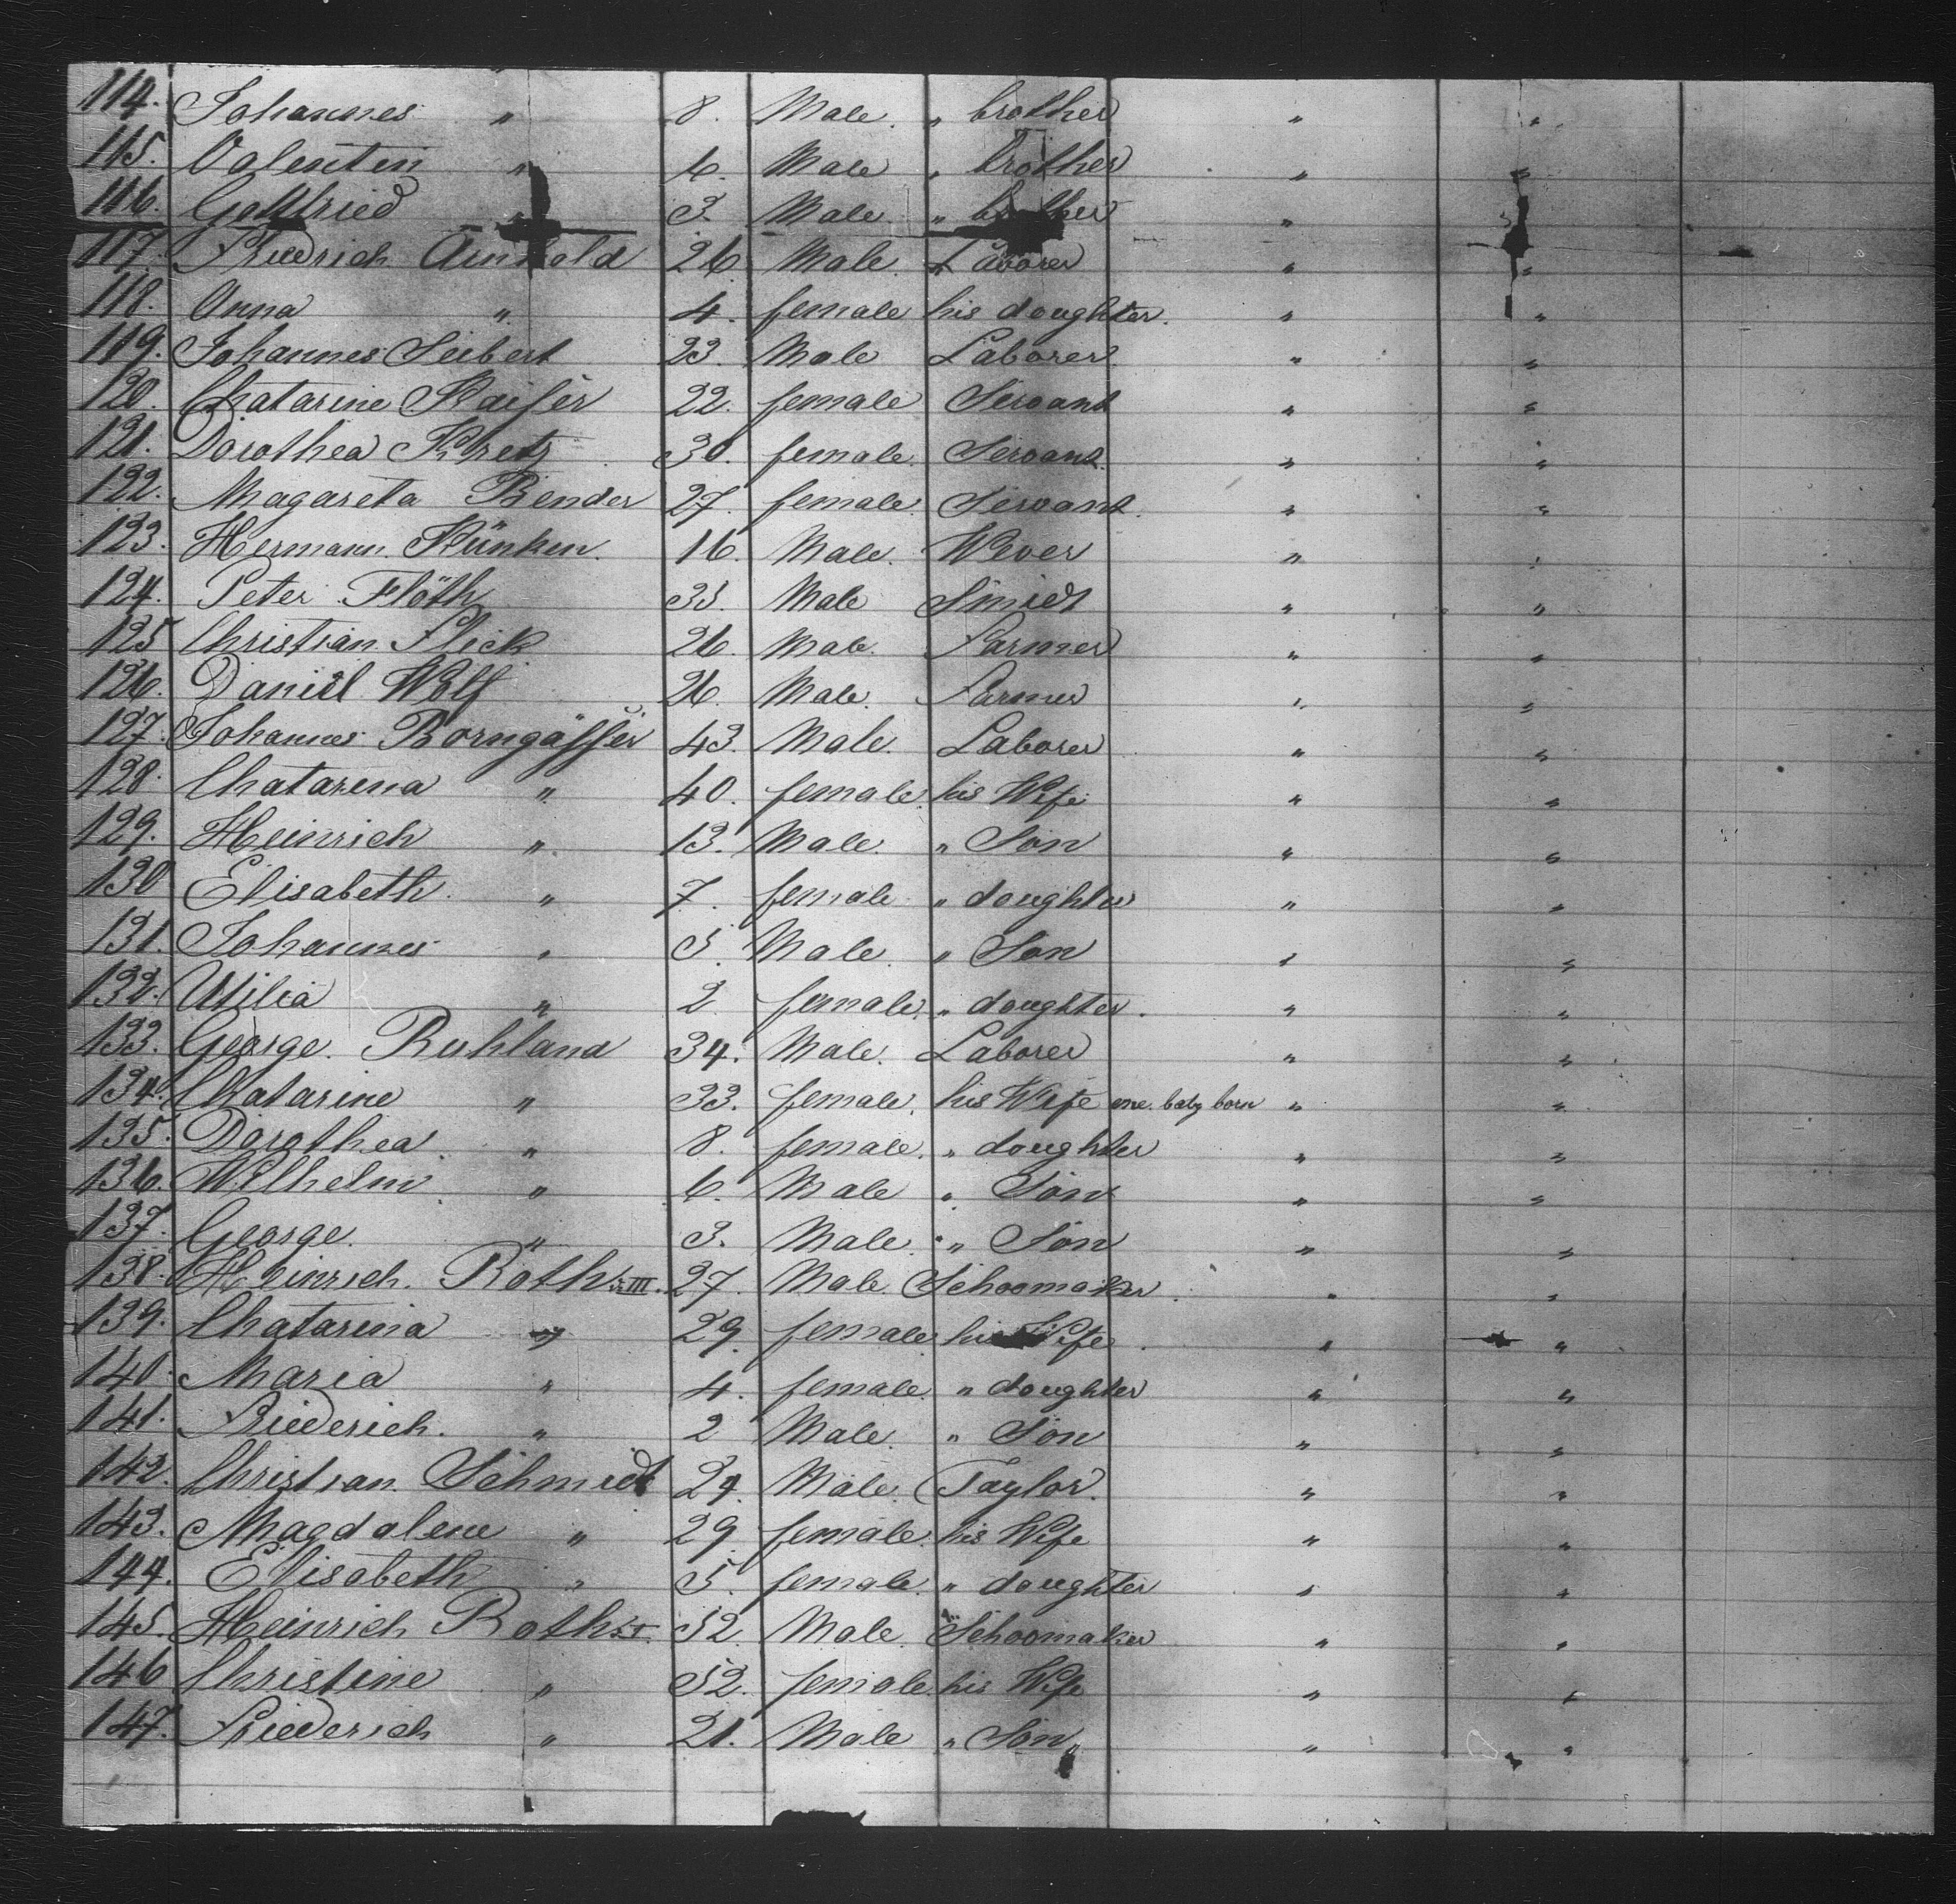 114. Johannes " 8. Male. " brother " "
115. Valentin " 6. Male " brother " "
116. Gottfried " 3. Male. " brother " "
117. Friedrich Arnhold 26 Male. Laborer " "
118. Anna " 4. female his doughter. " "
119. Johannes Seibert 23. Male Laborer. " "
120. Chatarine Kaiser 22. female Servant " "
121. Dorothea Kretz 30. female. Servant. " "
122. Magareta Bender 27. female. Servant. " "
123. Hermann Künken. 16. Male. Wever " "
124. Peter Flöth 33. Male Smidt " "
125 Christian Flick 26. Male. Farmer " "
126. Daniel Wolf 26. Male. Farmer " "
127. Johannes Borngässer 43. Male. Laborer " "
128. Chatarena " 40. female. his Wife " "
129. Heinrich " 13. Male. " Son " "
130 Elisabeth. " 7. female " doughter " "
131. Johannes " 5. Male. " Son " "
132. Utilia " 2 female. " doughter. " "
133. George. Ruhland 34. Male. Laborer " "
134. Chatarine " 33. female. his Wife one baby born " "
135. Dorothea. " 8. female. " doughter " "
136. Wilhelm " 6. Male " Son " "
137. George. " 3. Male. " Son " "
138. Heinrich. Roth III. 27. Male. Schoomaker. " "
139. Chatarina " 29. female his Wife. " "
140. Maria " 4. female. " doughter " "
141. Friederich. " 2 Male. " Son " "
142. Christian Schmidt 24. Male. Taylor. " "
143. Magdalene " 29 female. his Wife " "
144. Elisabeth " 5. female. " doughter " "
145. Heinrich Roth I. 52. Male. Schoomaker " "
146 Christine " 52. female. his Wife " "
147. Friederich " 21. Male " Son " "